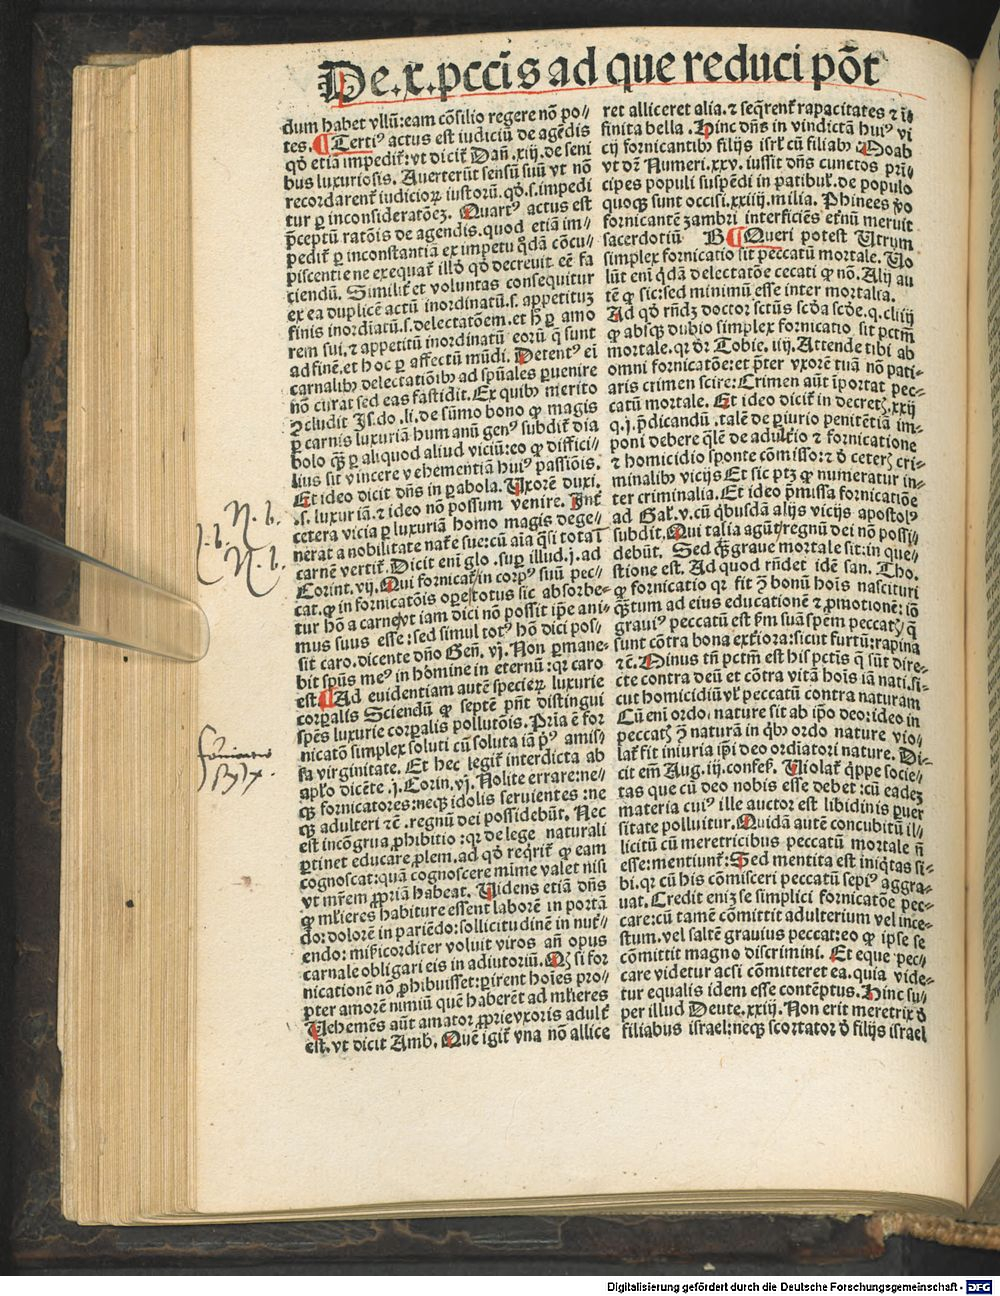 De .x. pccīs ad que reduci pōt
dum habet vllū: eam cōsilio regere nō po//
tes. ¶ Tertiꝰ actus est iudiciū de agēdis
qđ etiā impedit᷑: vt dicit᷑ Dañ. xiij. de seni
bus luxuriosis. Auerterūt sensū suū vt nō
recordarent᷑ iudicioꝝ iustorū. qđ .s. impedi
tur ꝑ inconsideratōeꝫ. Quartꝰ actus est
p̄ceptū ratōis de agendis. quod etiā im-
pedit᷑ ꝑ inconstantiā ex impetu q̄dā cōcu-
piscentie ne exequat᷑ illđ qđ decreuit eē fa
ciendū. Similit᷑ et voluntas consequitur
ex ea duplicē actū inordinatū .s. appetituꝫ
finis inordiatū .s. delectatōem. et h̄ ꝑ amo
rem sui. ⁊ appetitū inordinatū eorū q̄ sunt
ad finē. et hoc ꝑ affectū mūdi. Detentꝰ ei
carnalibꝫ delectatiōibꝫ ad spūales ꝑuenire
nō curat sed eas fastidit. Ex quibꝫ merito
ꝯcludit Is. do. li. de sūmo bono ꝙ magis
ꝑ carnis luxuriā humanū genꝰ subdit᷑ dia
bolo q̄ꝫ ꝑ aliquod aliud viciū: eo ꝙ diffici-
lius sit vincere vehementiā huiꝰ passiōis.
Et ideo dicit dn̄s in ꝑabola. Uxorē duxi.
.s. luxuriā. ⁊ ideo nō possum venire. Int᷑
cetera vicia ꝑ luxuriā homo magis dege-
nerat a nobilitate nat᷑e sue: cū aīa q̄si tota ī
carnē vertit᷑. Dicit eni glo. sup̄ illud .j. ad
Corint. vij. Qui fornicat᷑ in corpꝰ suū pec-
cat. ꝙ in fornicatōis oꝑe totus sic absorbe-
tur hō a carne vt iam dici nō possit ip̄e ani-
mus suus esse: sed simul totꝰ hō dici pos-
sit caro. dicente dn̄o Geñ. vj. Non ꝑmane-
bit spūs meꝰ in homine in eternū: qꝛ caro
est. ¶ Ad euidentiam autē specieꝝ luxurie
corꝑalis Sciendū ꝙ septē pn̄t distingui
spēs luxurie corꝑalis pollutōis. Prīa ē for
nicatō simplex soluti cū soluta iā pͥꝰ amis-
sa virginitate. Et hec legit᷑ interdicta ab
apl̄o dicēte .j. Corin. vj. Nolite errare: ne-
qꝫ fornicatores: neqꝫ idolis seruientes: ne
qꝫ adulteri ⁊c̄. regnū dei possidebūt. Nec
est incōgrua ꝓhibitio: qꝛ de lege naturali
ꝑtinet educare ꝓlem. ad qđ req̄rit᷑ ꝙ eam
cognoscat: quā cognoscere mīme valet nisi
vt mr̄em ꝓpriā habeat. Uidens etiā dn̄s
ꝙ ml̄ieres habiture essent laborē in portā
do: dolorē in pariēdo: sollicitudinē in nut᷑-
endo: mīicorditer voluit viros añ opus
carnale obligari eis in adiutoriū. Qꝫ si for
nicationē nō ꝓhibuisset: ꝑirent hoīes pro-
pter amorē nimiū quē haberēt ad ml̄ieres
Uehemēs aūt amator ꝓprie vxoris adult᷑
est. vt dicit Amb. Quē igit᷑ vna nō allice
ret alliceret alia. ⁊ seq̄rent᷑ rapacitates ⁊ ī
finita bella. Hinc dn̄s in vindictā huiꝰ vi
cij fornicantibꝫ filijs isrl̄ cū filiabꝫ Moab
vt dr̄ Numeri. xxv. iussit dn̄s cunctos prī-
cipes populi suspēdi in patibul᷑. de populo
quoqꝫ sunt occisi. xxiiij. milia. Phinees ꝟo
fornicantē zambri interficiēs et᷑nū meruit
sacerdotiū B ¶ Queri potest Utrum
simplex fornicatio sit peccatū mortale. Uo
lūt eni q̄dā delectatōe cecati ꝙ nō. Alij au
tē ꝙ sic: sed minimū esse inter mortalia.
Ad qđ rn̄dꝫ doctor sctūs scđa scđe. q. cliiij
ꝙ absqꝫ dubio simplex fornicatio sit pctm̄
mortale. qꝛ dr̄ Tobie. iiij. Attende tibi ab
omni fornicatōe: et p̄ter vxorē tuā nō pati-
aris crimen scire: Crimen aūt īportat pec-
catū mortale. Et ideo dicit᷑ in decretꝭ. xxij
q. j. p̄dicandū. talē de ꝑiurio penitētiā im-
poni debere q̄lē de adult᷑io ⁊ fornicatione
⁊ homicidio sponte cōmisso: ⁊ đ ceterꝭ cri-
minalibꝫ vicijs Et sic ptꝫ ꝙ numeratur in-
ter criminalia. Et ideo p̄missa fornicatiōe
ad Gal᷑. v. cū q̄busdā alijs vicijs apostolꝰ
subdit. Qui talia agūt regnū dei nō possi-
debūt. Sed q̄ꝫ graue mortale sit: in que-
stione est. Ad quod rn̄det idē san. Tho.
ꝙ fornicatio qꝛ fit ꝯ̄ bonū hoīs nascituri
q̄ꝫtum ad eius educationē ⁊ ꝓmotionē: iō
grauiꝰ peccatū est sm̄ suā spēm peccatꝭ q̄
sunt cōtra bona ext᷑iora: sicut furtū: rapina
⁊c̄. Minus tn̄ pctm̄ est his pctīs q̄ sūt dire-
cte contra deū et cōtra vitā hoīs iā nati. si-
cut homicidiū vl᷑ peccatū contra naturam
Cū eni ordo nature sit ab ip̄o deo: ideo in
peccatꝭ ꝯ̄ naturā in q̄bꝫ ordo nature vio-
lat᷑ fit iniuria ip̄i deo ordiatori nature. Di-
cit em̄ Aug. iij. confes᷑. Uiolat᷑ q̄ppe socie-
tas que cū deo nobis esse debet: cū eadeꝫ
materia cuiꝰ ille auctor est libidinis ꝑuer
sitate polluitur. Quidā autē concubitū il-
licitū cū meretricibus peccatū mortale n̄
esse: mentiunt᷑: Sed mentita est iniq̄tas si-
bi. qꝛ cū his cōmisceri peccatū sepiꝰ aggra-
uat. Credit enīꝫ se simplici fornicatōe pec-
care: cū tamē cōmittit adulterium vel ince-
stum. vel saltē grauius peccat: eo ꝙ ipse se
cōmittit magno discrimini. Et eque pec-
care videtur acsi cōmitteret ea. quia vide-
tur equalis idem esse contēptus. Hinc su-
per illud Deute. xxiij. Non erit meretrix đ
filiabus israel: neqꝫ scortator đ filijs israel
N. b.
N. b.
Digitalisierung gefördert durch die Deutsche Forschungsgemeinschaft - DFG